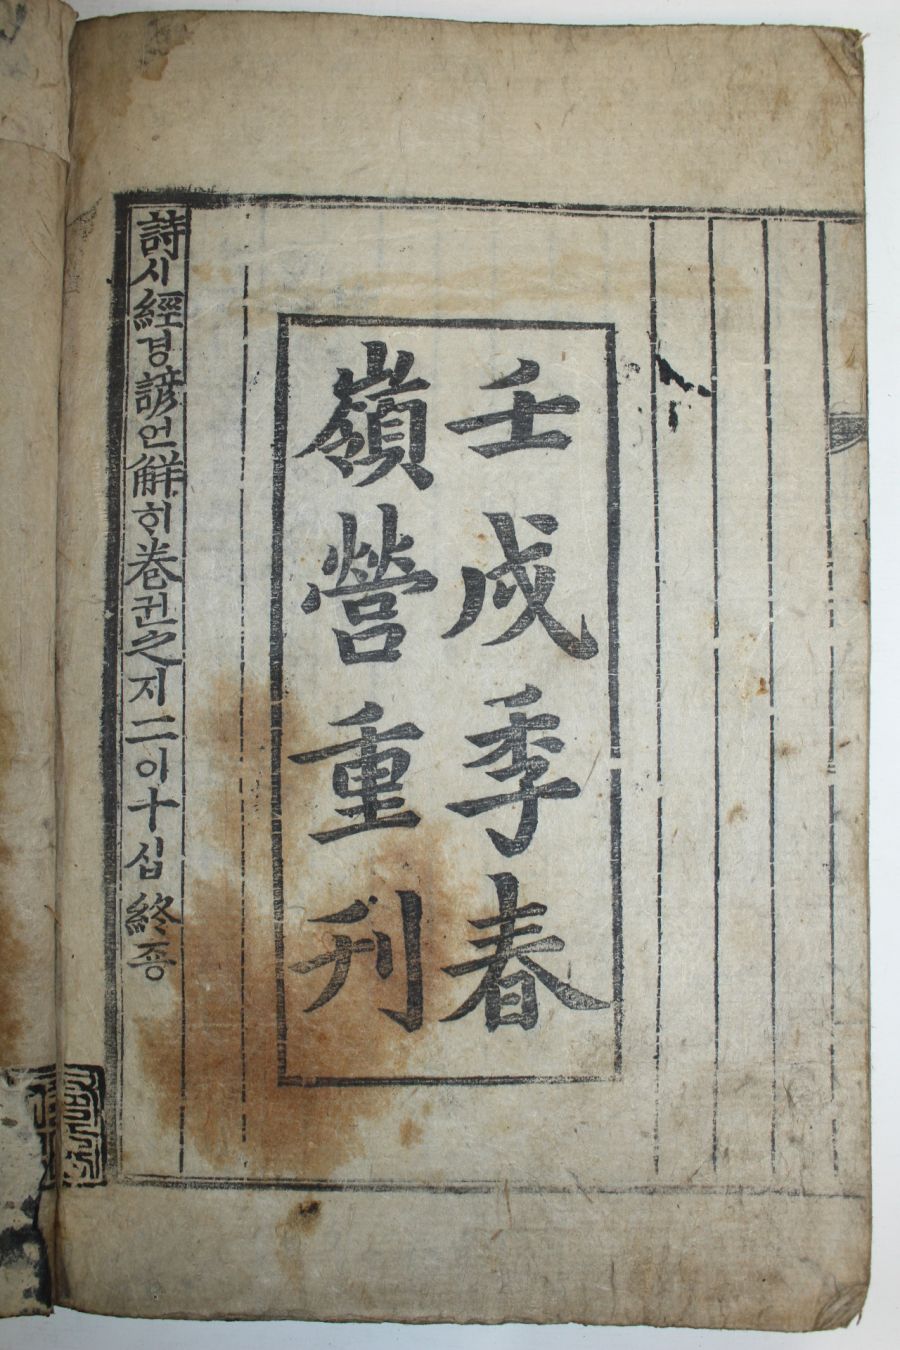 壬戌季春
嶺營重刊
詩시經경諺언解ᄒᆡ卷권之지二이十십 終죵